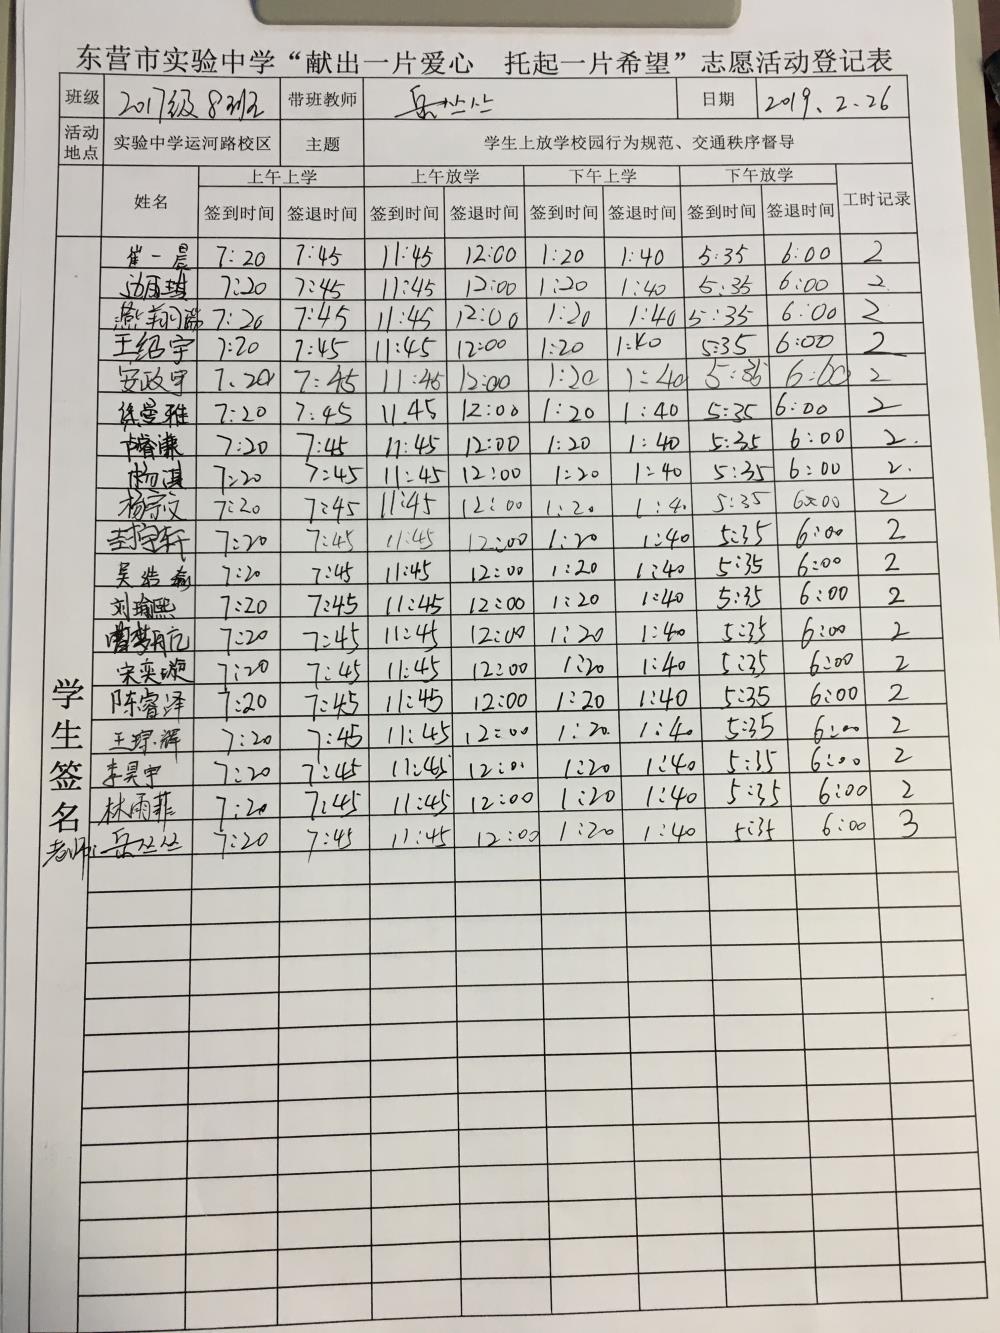 东营市实验中学“献出一片爱心 托起一片希望”志愿活动登记表
班级 2017级8班 带班教师 岳丝丝 日期 2019.2.26
活动地点 实验中学运河路校区 主题 学生上放学校园行为规范、交通秩序督导
姓名 上午上学 上午放学 下午上学 下午放学 工时记录
签到时间 签退时间 签到时间 签退时间 签到时间 签退时间 签到时间 签退时间
学生签名
崔一晨 7:20 7:45 11:45 12:00 1:20 1:40 5:35 6:00 2
7:20 7:45 11:45 12:00 1:20 1:40 5:35 6:00 2
7:20 7:45 11:45 12:00 1:20 1:40 5:35 6:00 2
王绍宇 7:20 7:45 11:45 12:00 1:20 1:40 5:35 6:00 2
安政宇 7:20 7:45 11:45 12:00 1:20 1:40 5:35 6:00 2
徐曼雅 7:20 7:45 11.45 12:00 1:20 1:40 5:35 6:00 2
7:20 7:45 11:45 12:00 1:20 1:40 5:35 6:00 2.
杨淇 7:20 7:45 11:45 12:00 1:20 1:40 5:35 6:00 2.
杨宗文 7:20 7:45 11:45 12:00 1:20 1:40 5:35 6:00 2
7:20 7:45 11:45 12:00 1:20 1:40 5:35 6:00 2
吴浩 7:20 7:45 11:45 12:00 1:20 1:40 5:35 6:00 2
刘瑜熙 7:20 7:45 11:45 12:00 1:20 1:40 5:35 6:00 2
7:20 7:45 11:45 12:00 1:20 1:40 5:35 6:00 2
宋奕璇 7:20 7:45 11:45 12:00 1:20 1:40 5:35 6:00 2
陈睿泽 7:20 7:45 11:45 12:00 1:20 1:40 5:35 6:00 2
王琮辉 7:20 7:45 11:45 12:00 1:20 1:40 5:35 6:00 2
李昊宇 7:20 7:45 11:45 12:00 1:20 1:40 5:35 6:00 2
林雨菲 7:20 7:45 11:45 12:00 1:20 1:40 5:35 6:00 2
老师: 岳丝丝 7:20 7:45 11:45 12:00 1:20 1:40 5:35 6:00 3